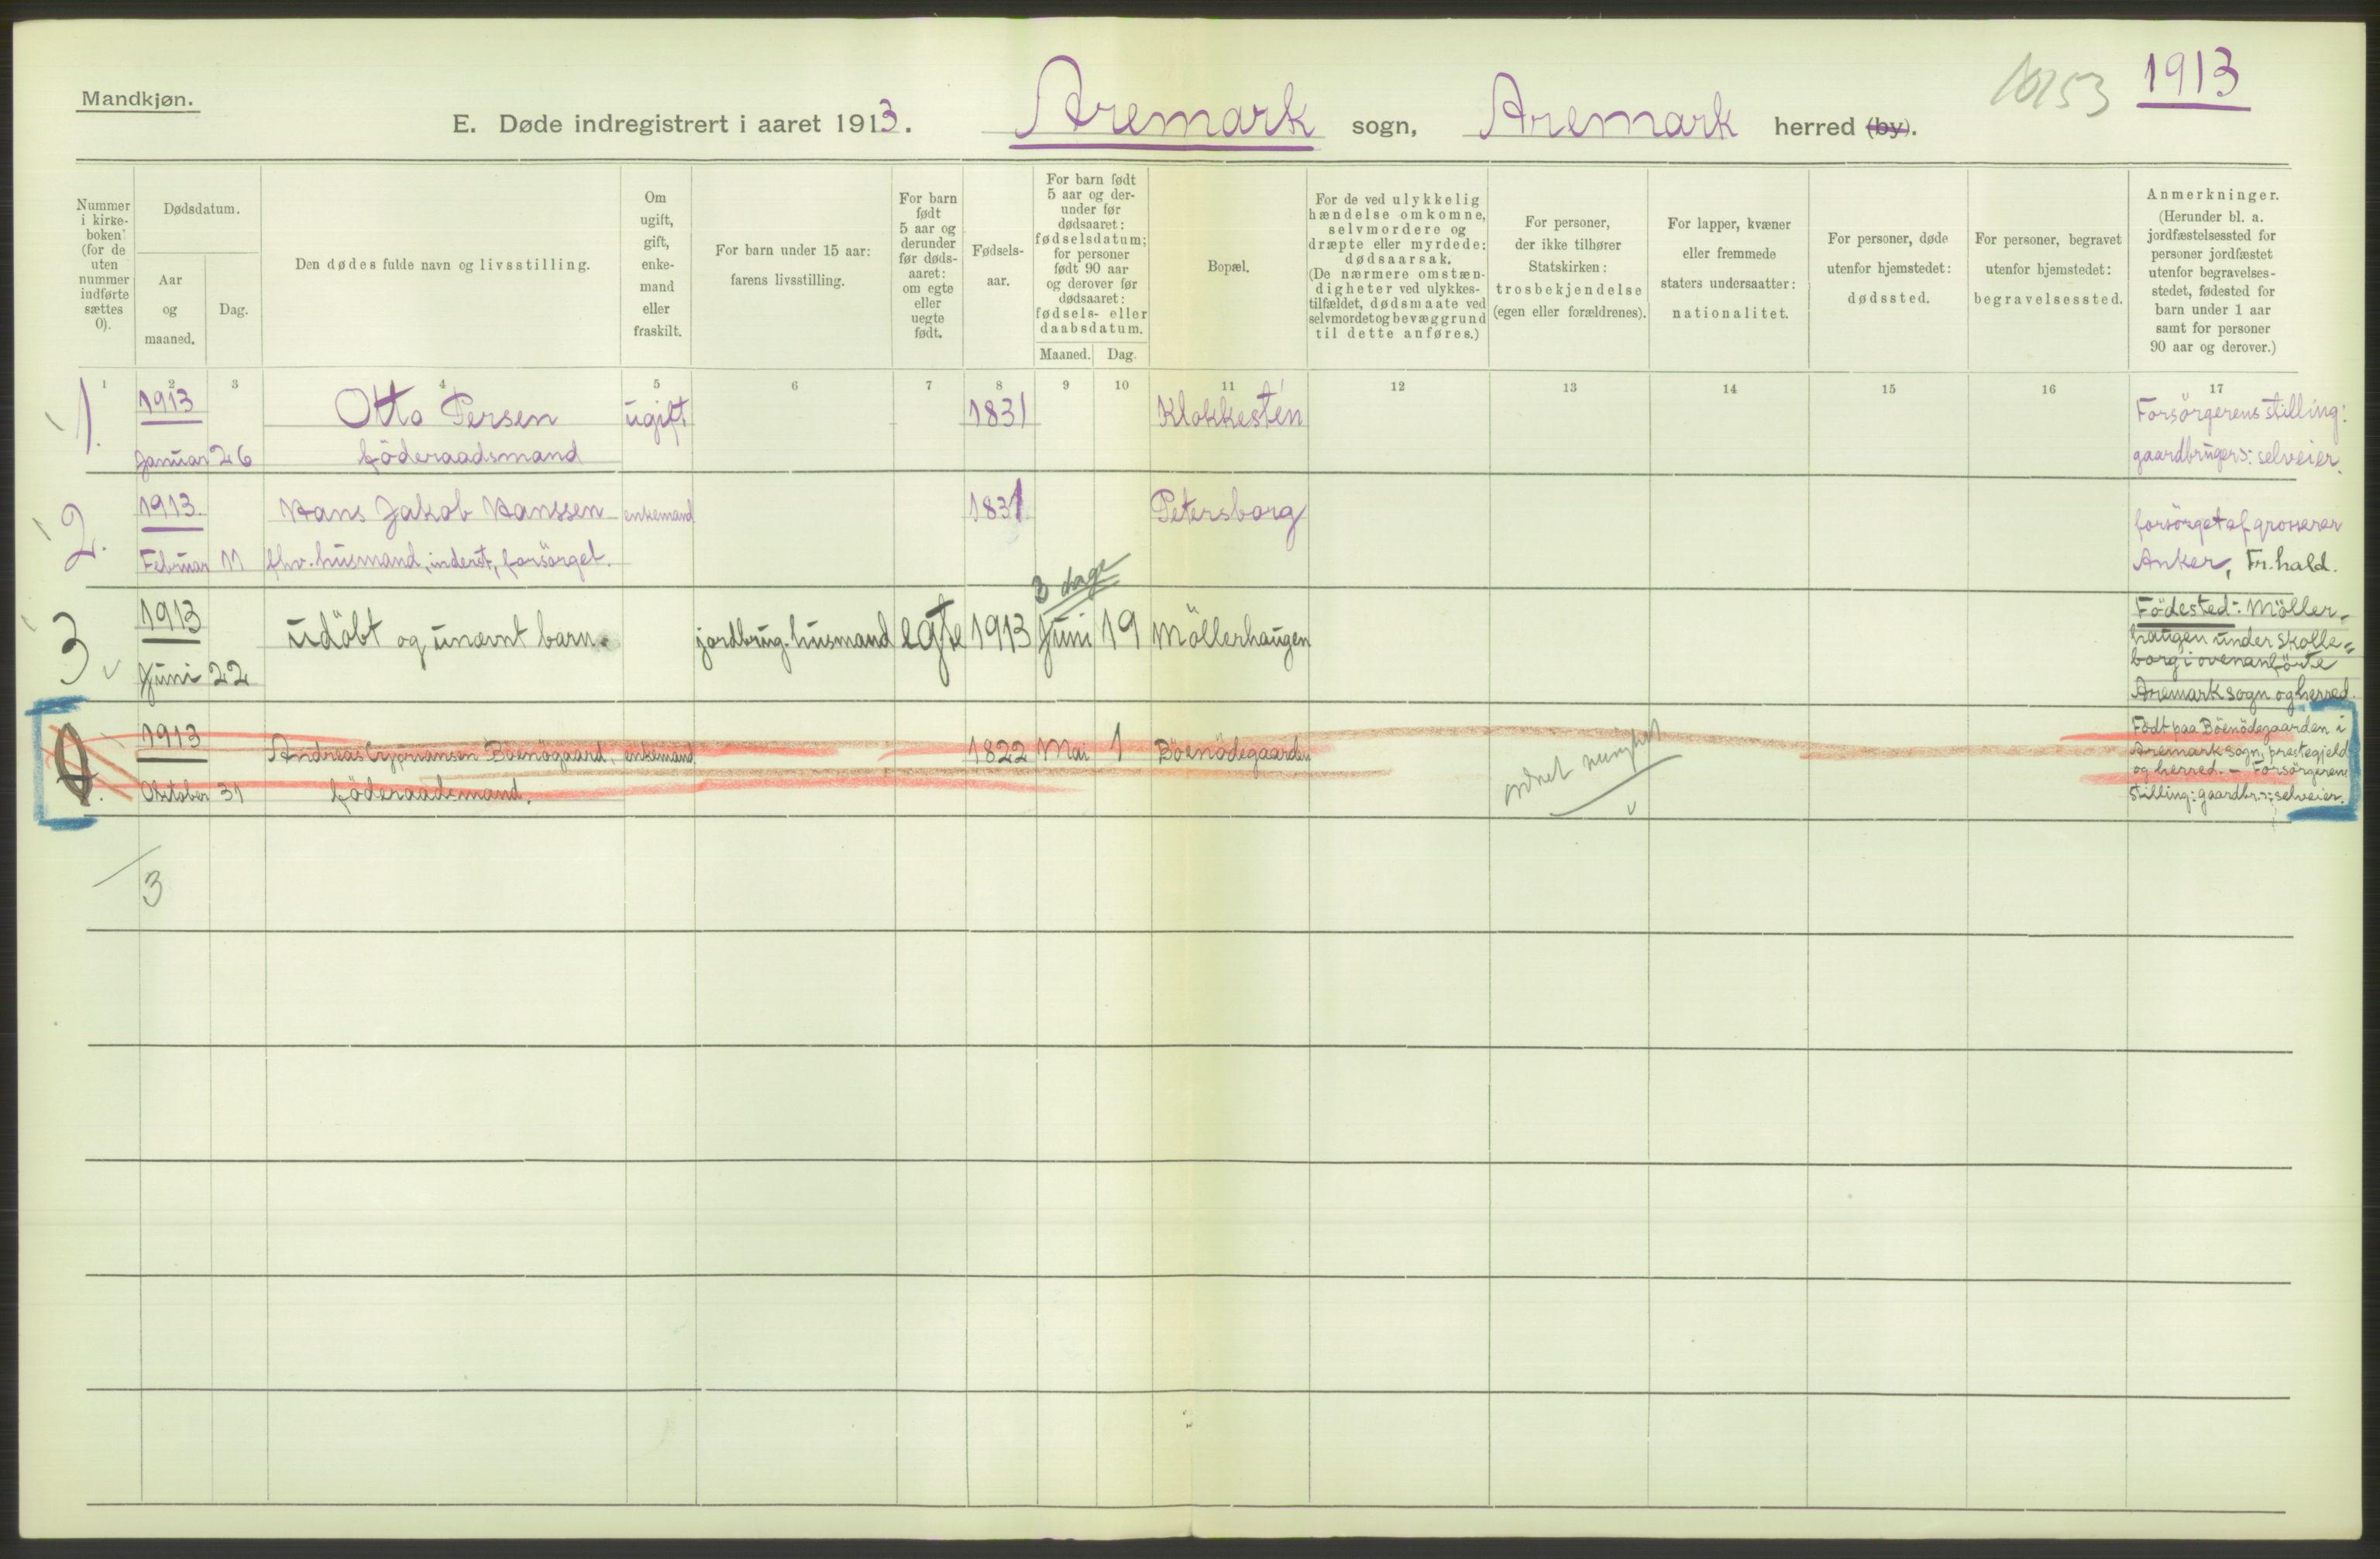 Mandkjøn.
10153
1913
E. Døde indregistrert i aaret 1913. Aremark sogn, Aremark herred (by).
Nummer i kirke- boken (for de uten nummer indførte sættes 0).
Dødsdatum.
Aar og maaned.
Dag.
Den dødes fulde navn og livsstilling.
Om ugift, gift, enke- mand eller fraskilt.
For barn under 15 aar: farens livsstilling.
For barn født 5 aar og derunder før døds- aaret: om egte eller uegte født.
Fødsels- aar.
For barn født 5 aar og der- under før dødsaaret: fødselsdatum; for personer født 90 aar og derover før dødsaaret: fødsels- eller daabsdatum.
Maaned. Dag.
Bopæl.
For de ved ulykkelig hændelse omkomne, selvmordere og dræpte eller myrdede: dødsaarsak. (De nærmere omstæn- digheter ved ulykkes- tilfældet, dødsmaate ved selvmordet og bevæggrund til dette anføres.)
For personer, der ikke tilhører Statskirken: trosbekjendelse (egen eller forældrenes).
For lapper, kvæner eller fremmede staters undersaatter: nationalitet.
For personer, døde utenfor hjemstedet: dødssted.
For personer, begravet utenfor hjemstedet: begravelsessted.
Anmerkninger. (Herunder bl. a. jordfæstelsessted for personer jordfæstet utenfor begravelses- stedet, fødested for barn under 1 aar samt for personer 90 aar og derover.)
1 2 3 4 5 6 7 8 9 10 11 12 13 14 15 16 17
1. 1913 Otto Persen ugift 1831 Klokkestén Forsörgerens stilling:
Januar 26 föderaadsmand gaardbruger: selveier.
2. 1913. Hans Jakob Hanssen enkemand 1831 Petersborg forsörget af grosserer
Februar 11 fhv. husmand, inderst, forsörget. Anker, Fr.hald.
3 dage
3 1913 udöbt og unævnt barn. jordbrug. husmand egte 1913 Juni 19 Möllerhaugen Födested: Möller-
haugen under Skolle-
borg i ovenanförte
Juni 22 Aremark sogn og herred.
4. 1913 Andreas Cypriansen Böenögaard, enkemand 1822 Mai 1 Böenödegaarden Födt paa Böenödegaarden i
Aremark sogn, prestegjeld
og herred. – Forsörgerens
Oktober 31 föderaadsmand. stilling: gaardbr.: selveier.
3